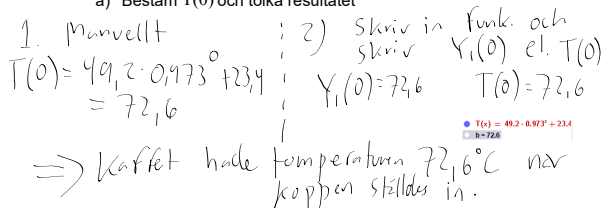 a) Bestäm T(0) och tolka resultatet
1. Manuellt
T(0) = 49,2 · 0,973⁰ + 23,4
= 72,6
2) Skriv in funk. och
skriv Y₁(0) el. T(0)
Y₁(0) = 72,6 T(0) = 72,6
T(x) = 49.2 · 0.973ˣ + 23.4
b = 72.6
=> Kaffet hade temperaturen 72,6°C när
koppen ställdes in.